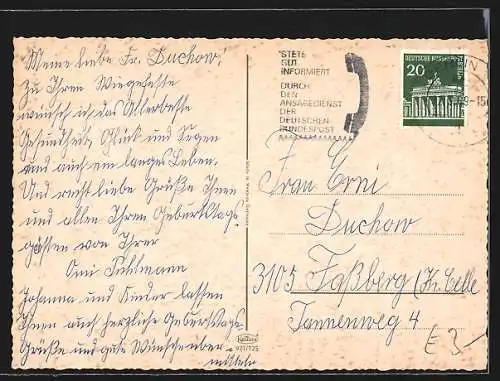 Meine liebe Fr. Duchow!
Zu Ihrem Wiegefeste
wünsch ich das Allerbeste
Gesundheit, Glück und Segen
und auch ein langes Leben.
Und recht liebe Grüße Ihnen
und allen Ihren Geburtstags-
gästen von Ihrer
Omi
Johanna und Kinder lassen
Ihnen auch herzliche Geburtstags-
Grüße und gute Wünsche über-
mitteln
STETS
GUT
INFORMIERT
DURCH
DEN
ANSAGEDIENST
DER
DEUTSCHEN
BUNDESPOST
DEUTSCHE BUNDESPOST
20
-15
Frau Erni
Duchow
3105 Faßberg (Kr. Celle
Tannenweg 4
£ 3,-
Krüger